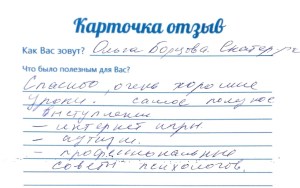 Карточка отзыв
Как Вас зовут? Ольга Борцова
Что было полезным для Вас?
Спасибо, очень хорошие
уроки. самое полезное
выступление
– интернет игры.
– аутизм.
– профессиональные
советы психологов.